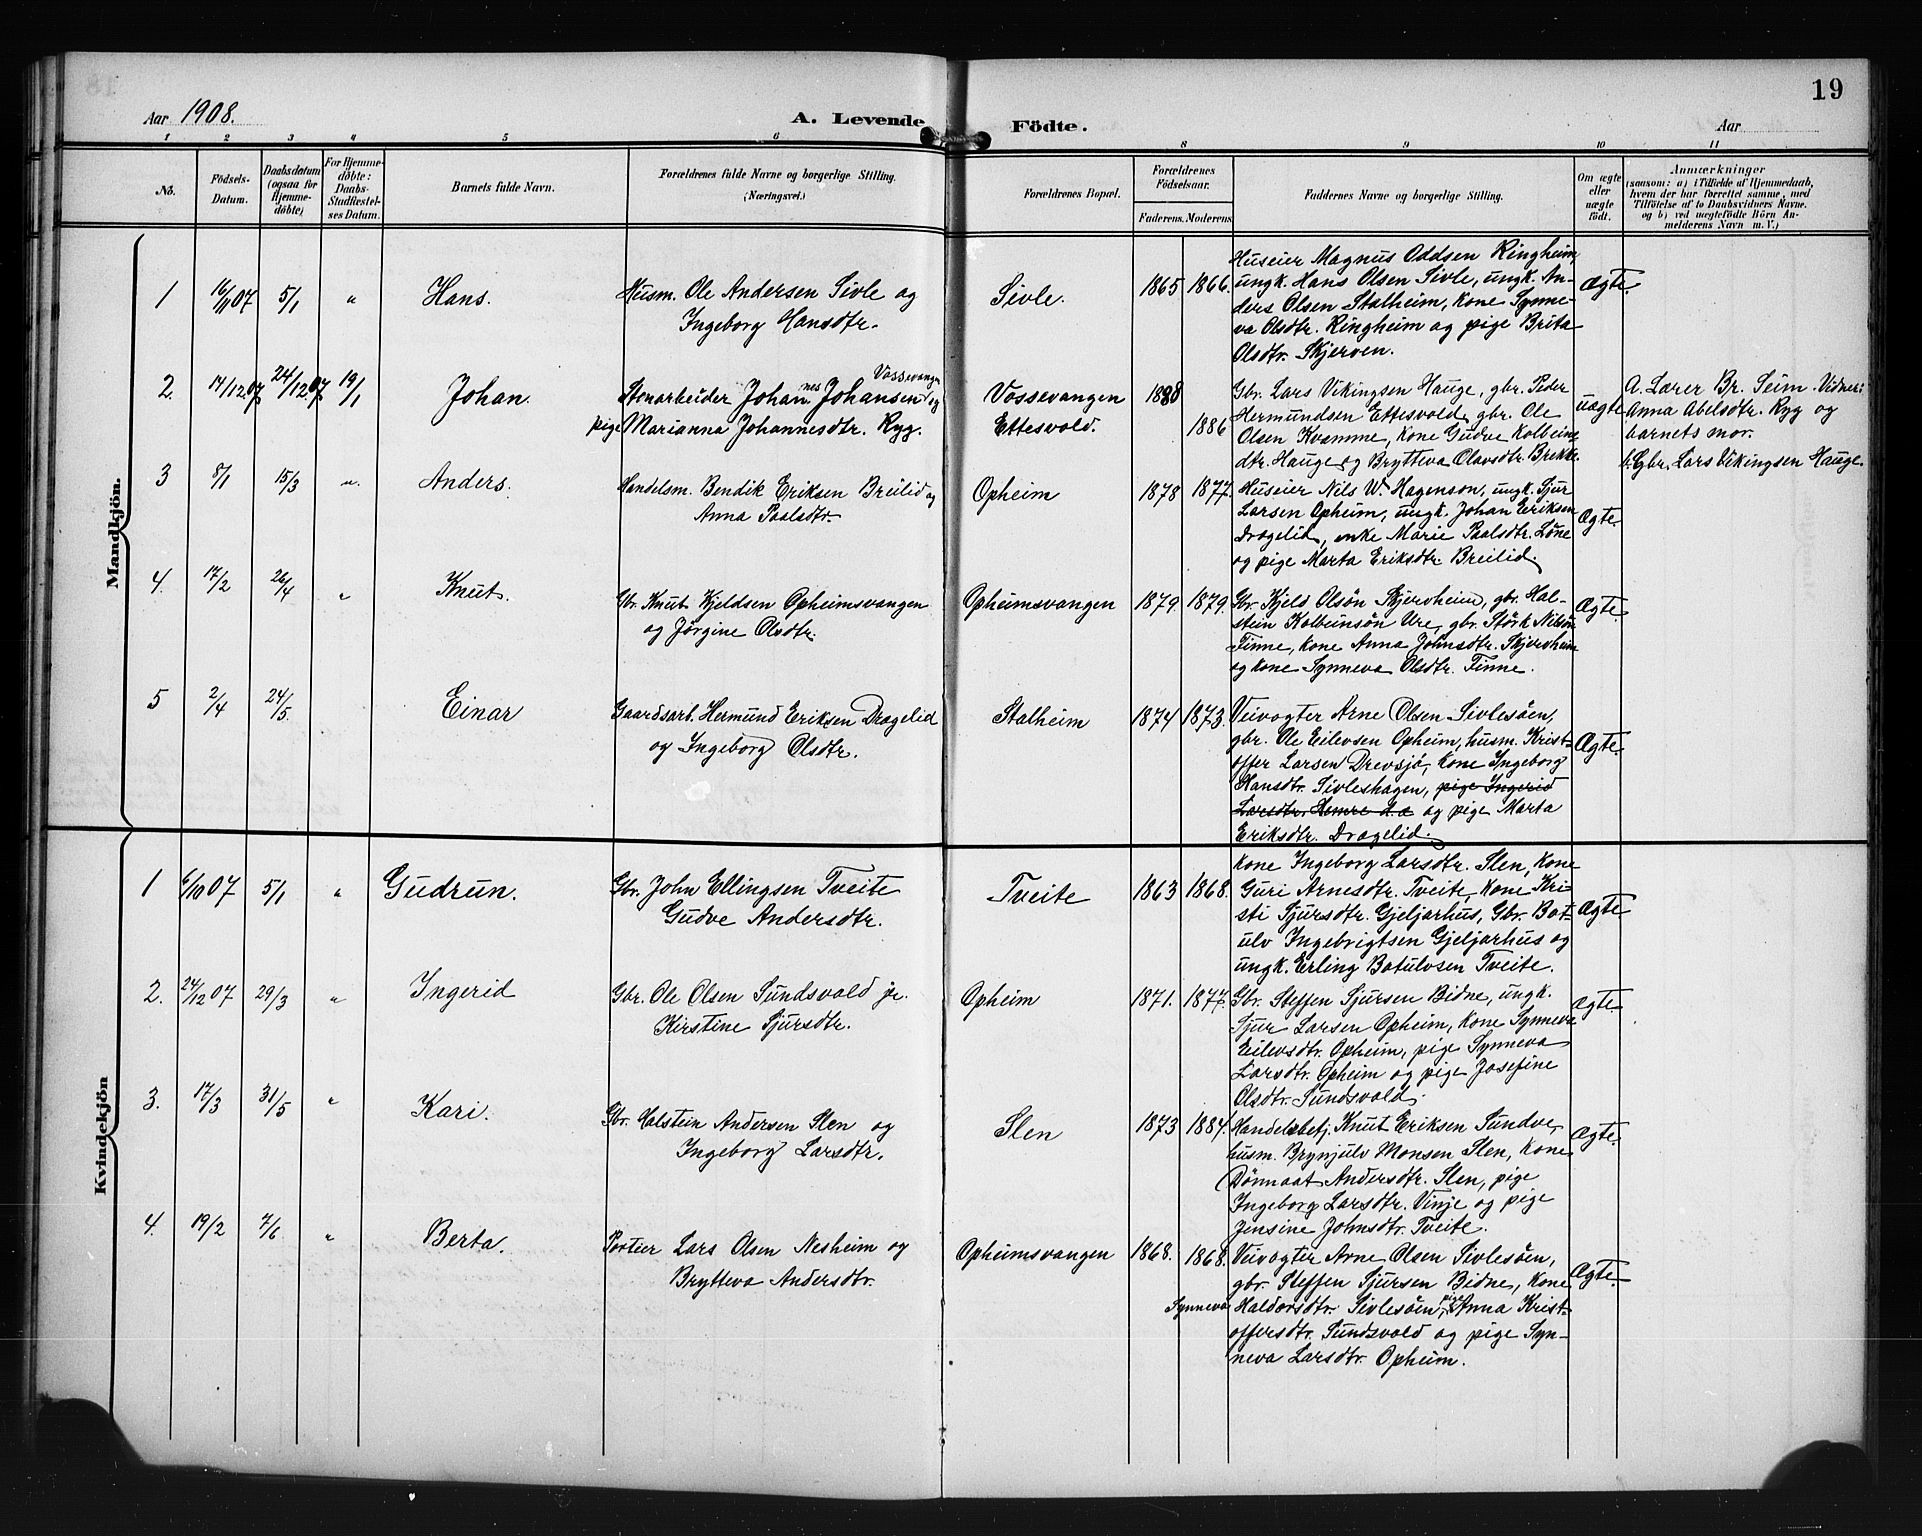 19
Aar 1908.
A. Levende
Födte.
Aar
1 2 3 4 5 6 8 9 10 11
No.
Födsels-
Datum.
Daabsdatum
(ogsaa for
Hjemme-
döbte)
For Hjemme-
döbte:
Daabs-
Stadfæstel-
ses Datum.
Barnets fulde Navn.
Forældrenes fulde Navne og borgerlige Stilling.
(Næringsvei.)
Forældrenes Bopæl.
Forældrenes
Födselsaar.
Faderens. Moderens.
Faddernes Navne og borgerlige Stilling.
Om ægte
eller
uægte
født.
Anmærkninger
(saasom: a) i Tilfælde af Hjemmedaab,
hvem der har forrettet samme, med
Tilföielse af to Daabsvidners Navne.
og b) ved uægtefödte Börn An-
melderens Navn m. V.)
Mandkjön.
1 16/11 07 5/1 " Hans.
Husm. Ole Andersen Sivle og
Ingeborg Hansdtr.
Sivle. 1865 1866.
Huseier Magnus Oddsen Ringheim,
ungk. Hans Olsen Sivle, ungk. An-
ders Olsen Stalheim, kone Synne-
va Olsdtr. Ringheim og pige Brita
Olsdtr. Skjerven.
Ægte.
2. 14/12.07 24/12.07 19/1 Johan.
Vossevangen
Stenarbeider Johan nes Johansen og
pige Marianna Johannesdtr. Ryg.
Vossevangen 1880
Ettesvold. 1886
Gbr. Lars Vikingsen Hauge, gbr. Peder
Hermundsen Ettesvold, gbr. Ole
Olsen Kvamme, kone Gudve Kolbeins
dtr. Hauge og Brytteva Olavsdtr. Brekke.
uægte
A. Lærer Br. Seim. Vidner:
Anna Abelsdtr. Ryg og
barnets mor.
b. Gbr. Lars Vikingsen Hauge.
3 8/1 15/3 " Anders.
Handelsm. Bendik Eriksen Breilid og
Anna Paalsdtr.
Opheim 1878 1877.
Huseier Nils W. Hagenson, ungk. Sjur
Larsen Opheim, ungk. Johan Eriksen
Dragelid, enke Marie Paalsdtr. Løne
og pige Marta Eriksdtr. Breilid.
Ægte.
4. 17/2 26/4 " Knut.
Gbr. Knut Kjeldsen Opheimsvangen
og Jørgine Olsdtr.
Opheimsvangen 1879. 1879.
Gbr. Kjeld Olsøn Skjervheim, gbr. Hal-
stein Kolbeinsön Ure, gbr. Störk Nilsön
Finne, kone Anna Johnsdtr. Skjervheim
og kone Synneva Olsdtr. Finne.
Ægte.
5 2/4 24/5. Einar
Gaardsarb. Hermund Eriksen Dragelid
og Ingeborg Olsdtr.
Stalheim 1874 1873.
Veivogter Arne Olsen Sivlesöen,
gbr. Ole Eilevsen Opheim, husm. Krist-
offer Larsen Drevsjø, kone Ingeborg
Hansdtr. Sivleshagen, pige Ingerid
Larsdtr. Hemre d.a og pige Marta
Eriksdtr. Dragelid.
Ægte.
Kvindekjön
1 6/10 07 5/1 " Gudrun.
Gbr. John Ellingsen Tveite
Gudve Andersdtr.
Tveite 1863 1868.
Kone Ingeborg Larsdtr. Slen, kone
Guri Arnesdtr. Tveite, kone Kri-
sti Sjursdtr. Gjeljarhus, Gbr. Bot-
ulv Ingebrigtsen Gjeljarhus og
ungk. Erling Botulvsen Tveite.
Ægte
2. 24/12 07 29/3 " Ingerid
Gbr. Ole Olsen Sundsvold jr.
Kirstine Sjursdtr.
Opheim 1871. 1877.
Gbr. Steffen Sjursen Bidne, ungk.
Sjur Larsen Opheim, kone Synneva
Eilevsdtr. Opheim, pige Synneva
Larsdtr. Opheim og pige Josefine
Olsdtr. Sundsvold.
Ægte.
3. 17/3 31/5 " Kari.
Gbr. Halstein Andersen Slen og
Ingeborg Larsdtr.
Slen 1873 1884.
Handelsbetj. Knut Eriksen Sundve,
husm. Brynjulv Monsen Slen, kone
Dönnaat Andersdtr. Slen, pige
Ingeborg Larsdtr. Vinje og pige
Jensine Johnsdtr. Tveite.
Ægte.
4. 19/2 7/6 " Berta.
Portier Lars Olsen Nesheim og
Brytteva Andersdtr.
Opheimsvangen 1868. 1868.
Veivogter Arne Olsen Sivlesöen,
gbr. Steffen Sjursen Bidne, kone
Synneva Haldorsdtr. Sivlesöen, pige Anna Krist-
offersdtr. Sundsvold og pige Syn-
neva Larsdtr. Opheim.
Ægte.